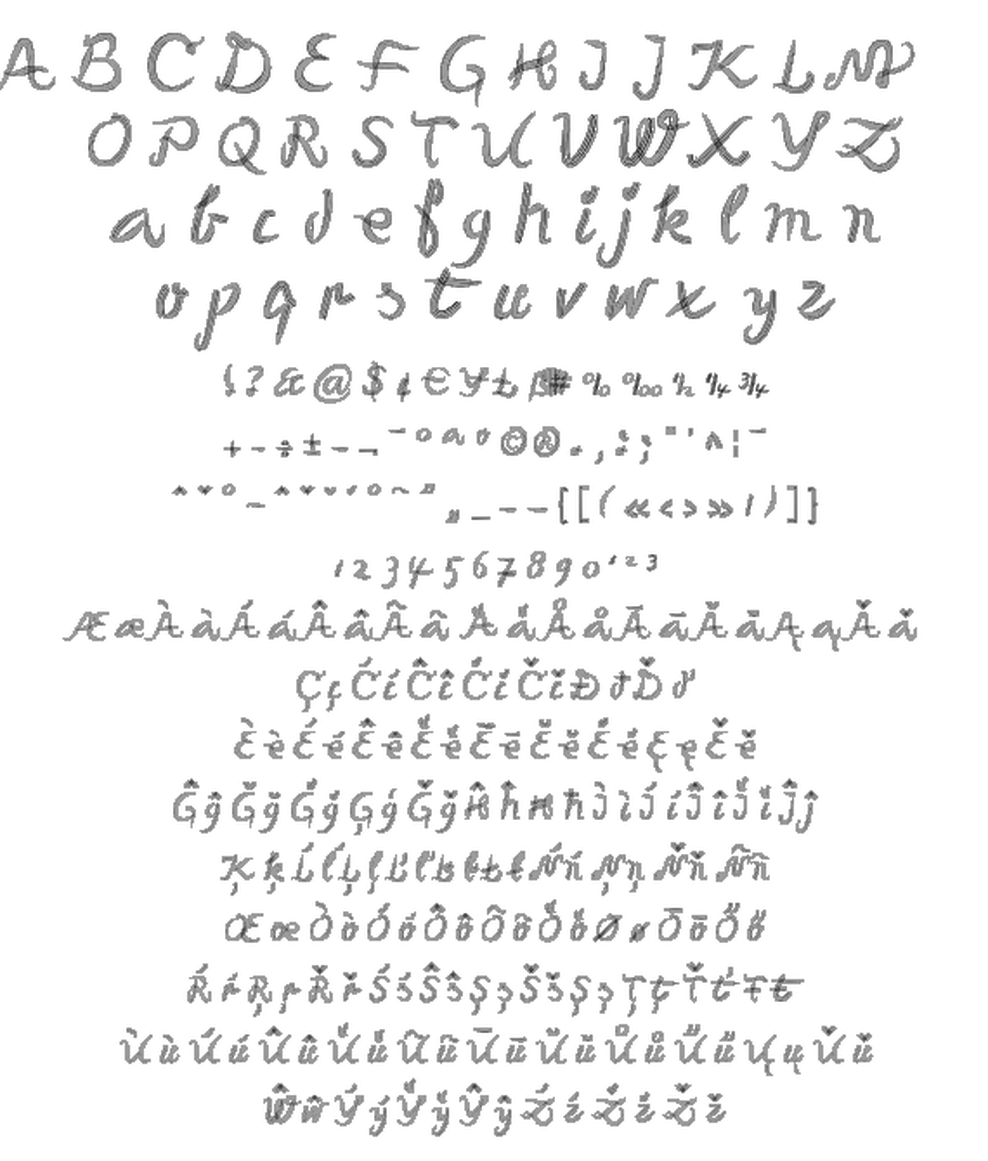 A B C D E F G H I J K L M
O P Q R S T U V W X Y Z
a b c d e f g h i j k l m n
o p q r s t u v w x y z
! ? & @ $ ¢ € ¥ Ł ß # % ‰ ½ ¼ ¾
+ - ÷ ± − ¬ ¯ º ª º © ® . , : ; " ' ^ ¦ ¯
{ [ ( « < > » / ) ] }
1 2 3 4 5 6 7 8 9 0 ¹ ² ³
Æ æ À à Á á Â â Ã ã Ä ä Å å Ā ā Ă ă Ą ą Ǎ ǎ
Ç ç Ć ć Ĉ ĉ Ċ ċ Č č Đ đ Ď ď
È è É é Ê ê Ë ë Ē ē Ĕ ĕ Ė ė Ę ę Ě ě
Ĝ ĝ Ğ ğ Ġ ġ Ģ ģ Ǧ ǧ Ĥ ĥ Ħ ħ Ì ì Í í Î î Ï ï Ĵ ĵ
Ķ ķ Ĺ ĺ Ļ ļ Ľ ľ Ŀ ŀ Ł ł Ń ń Ņ ņ Ň ň Ñ ñ
Œ œ Ò ò Ó ó Ô ô Õ õ Ö ö Ø ø Ō ō Ő ő
Ŕ ŕ Ŗ ŗ Ř ř Ś ś Ŝ ŝ Ş ş Š š Ș ș Ţ ţ Ť ť Ŧ ŧ
Ù ù Ú ú Û û Ü ü Ũ ũ Ū ū Ŭ ŭ Ů ů Ű ű Ų ų Ǔ ǔ
Ŵ ŵ Ý ý Ÿ ÿ Ŷ ŷ Ź ź Ż ż Ž ž